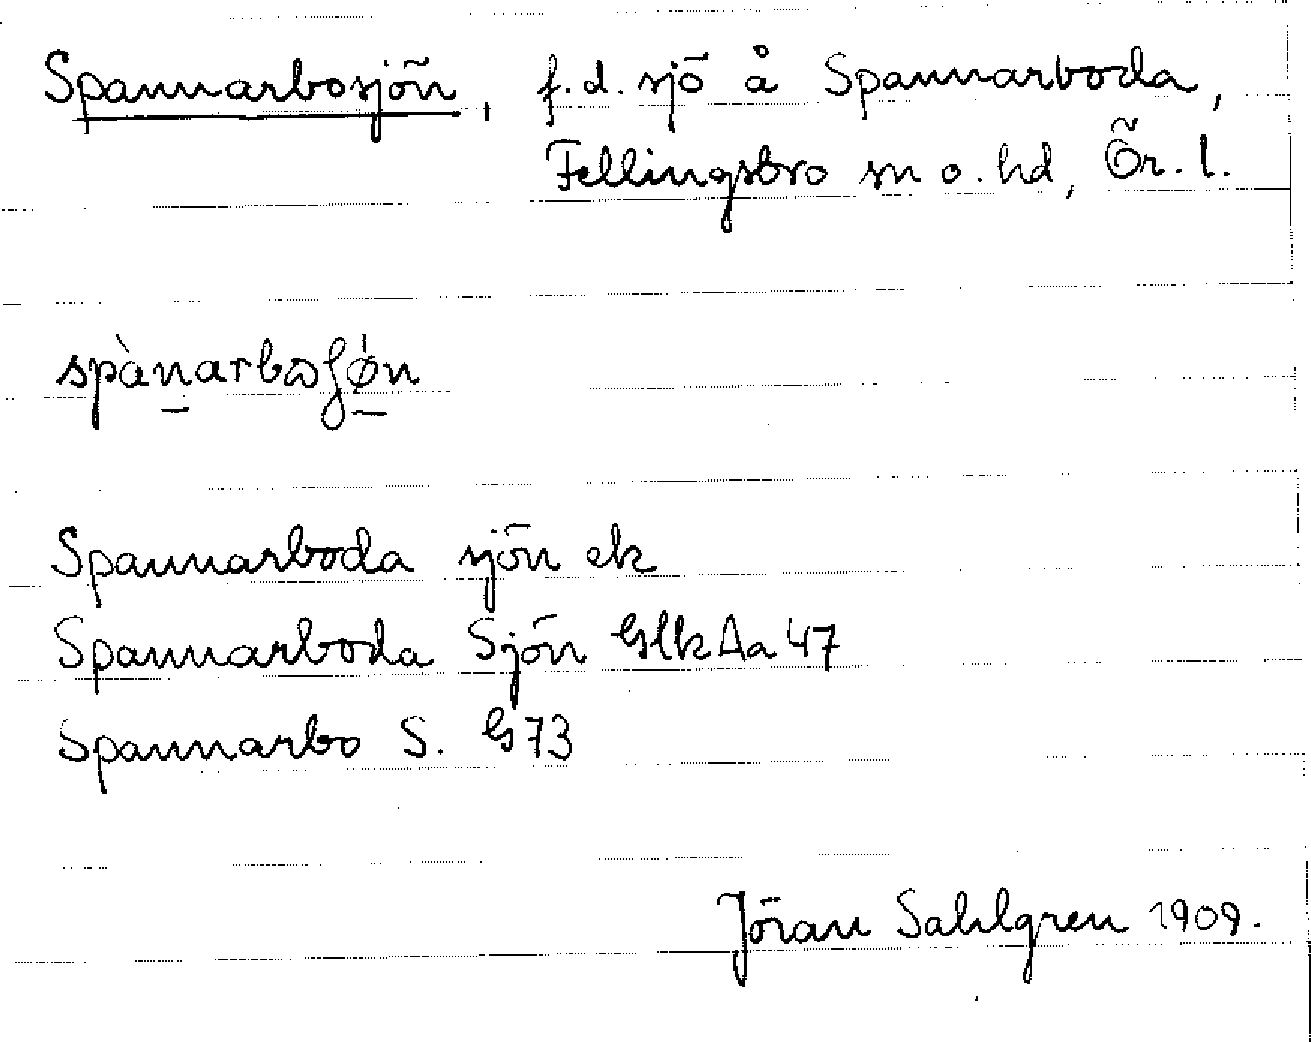 Spannarbosjön, f.d. sjö å Spannarboda,
Fellingsbro sn o. hd, Ör. l.
spànarbωʃǿn
Spannarboda sjön ek
Spannarboda Sjön GlkAa 47
Spannarbo S. G73
Jöran Sahlgren 1909.